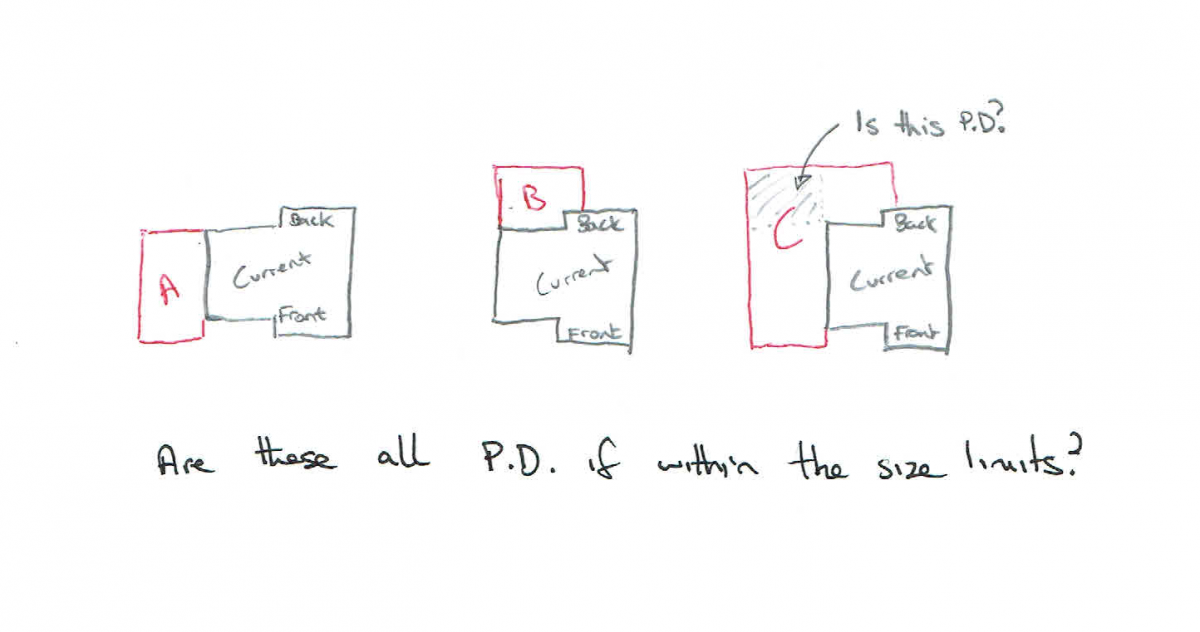 Is this P.D?
B
Back
Back
Back
A
Current
Current
C
Current
Front
Front
Front
Are these all P.D. if within the size limits?